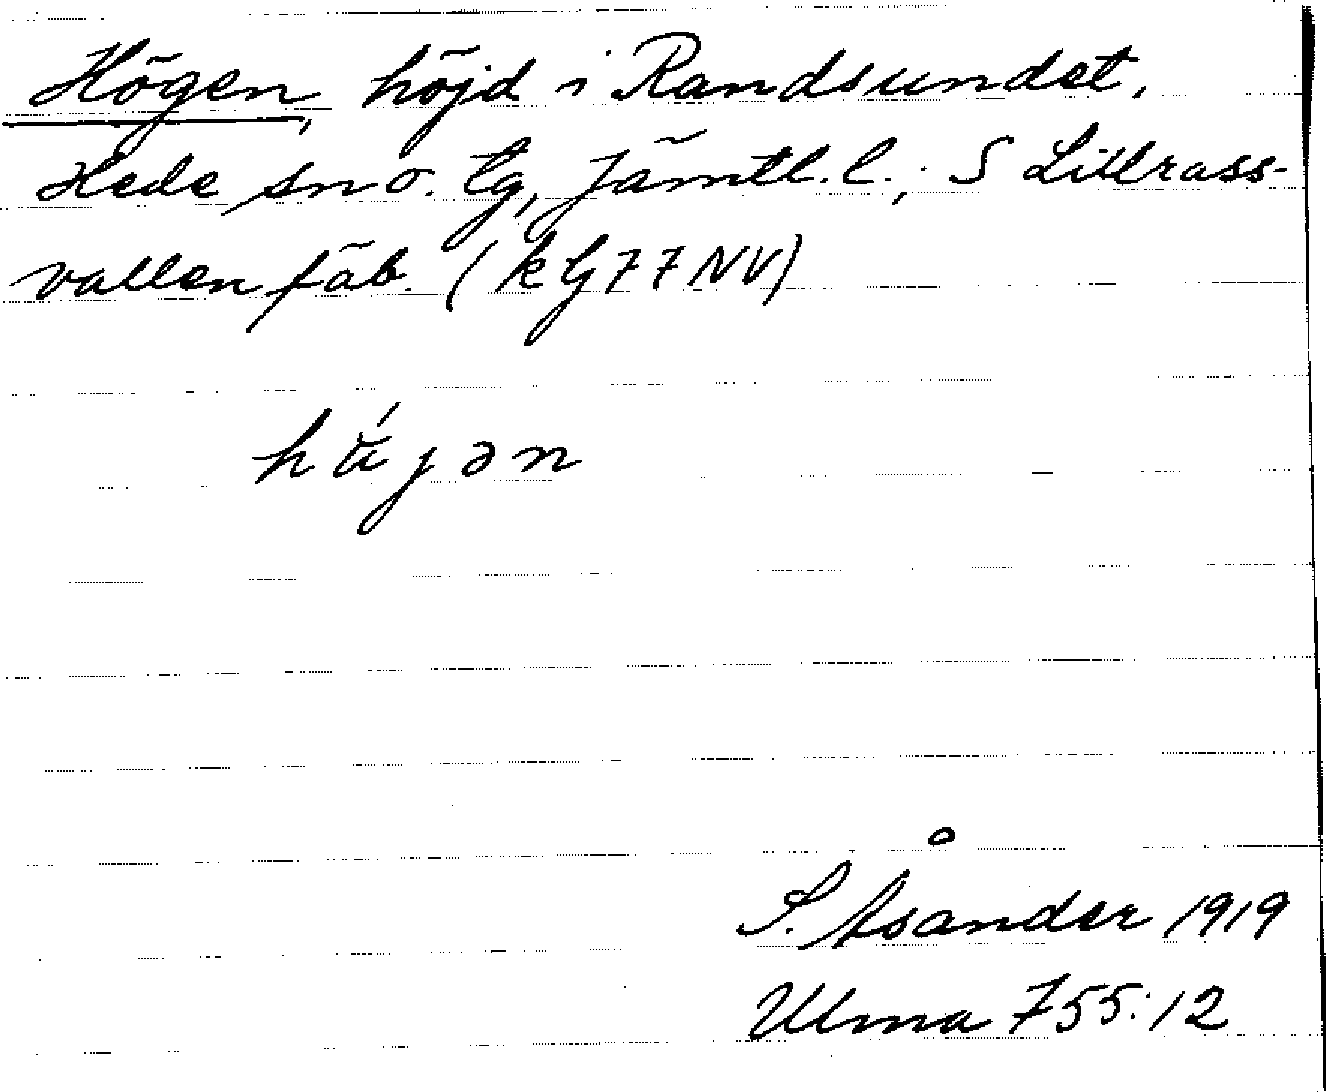 Högen, höjd i Randsundet,
Hede sn o. tg, Jämtl. l.; S Lillrass-
vallen fäb. (kG77NV)
hä́jən
S. Åsander 1919
Ulma 755:12